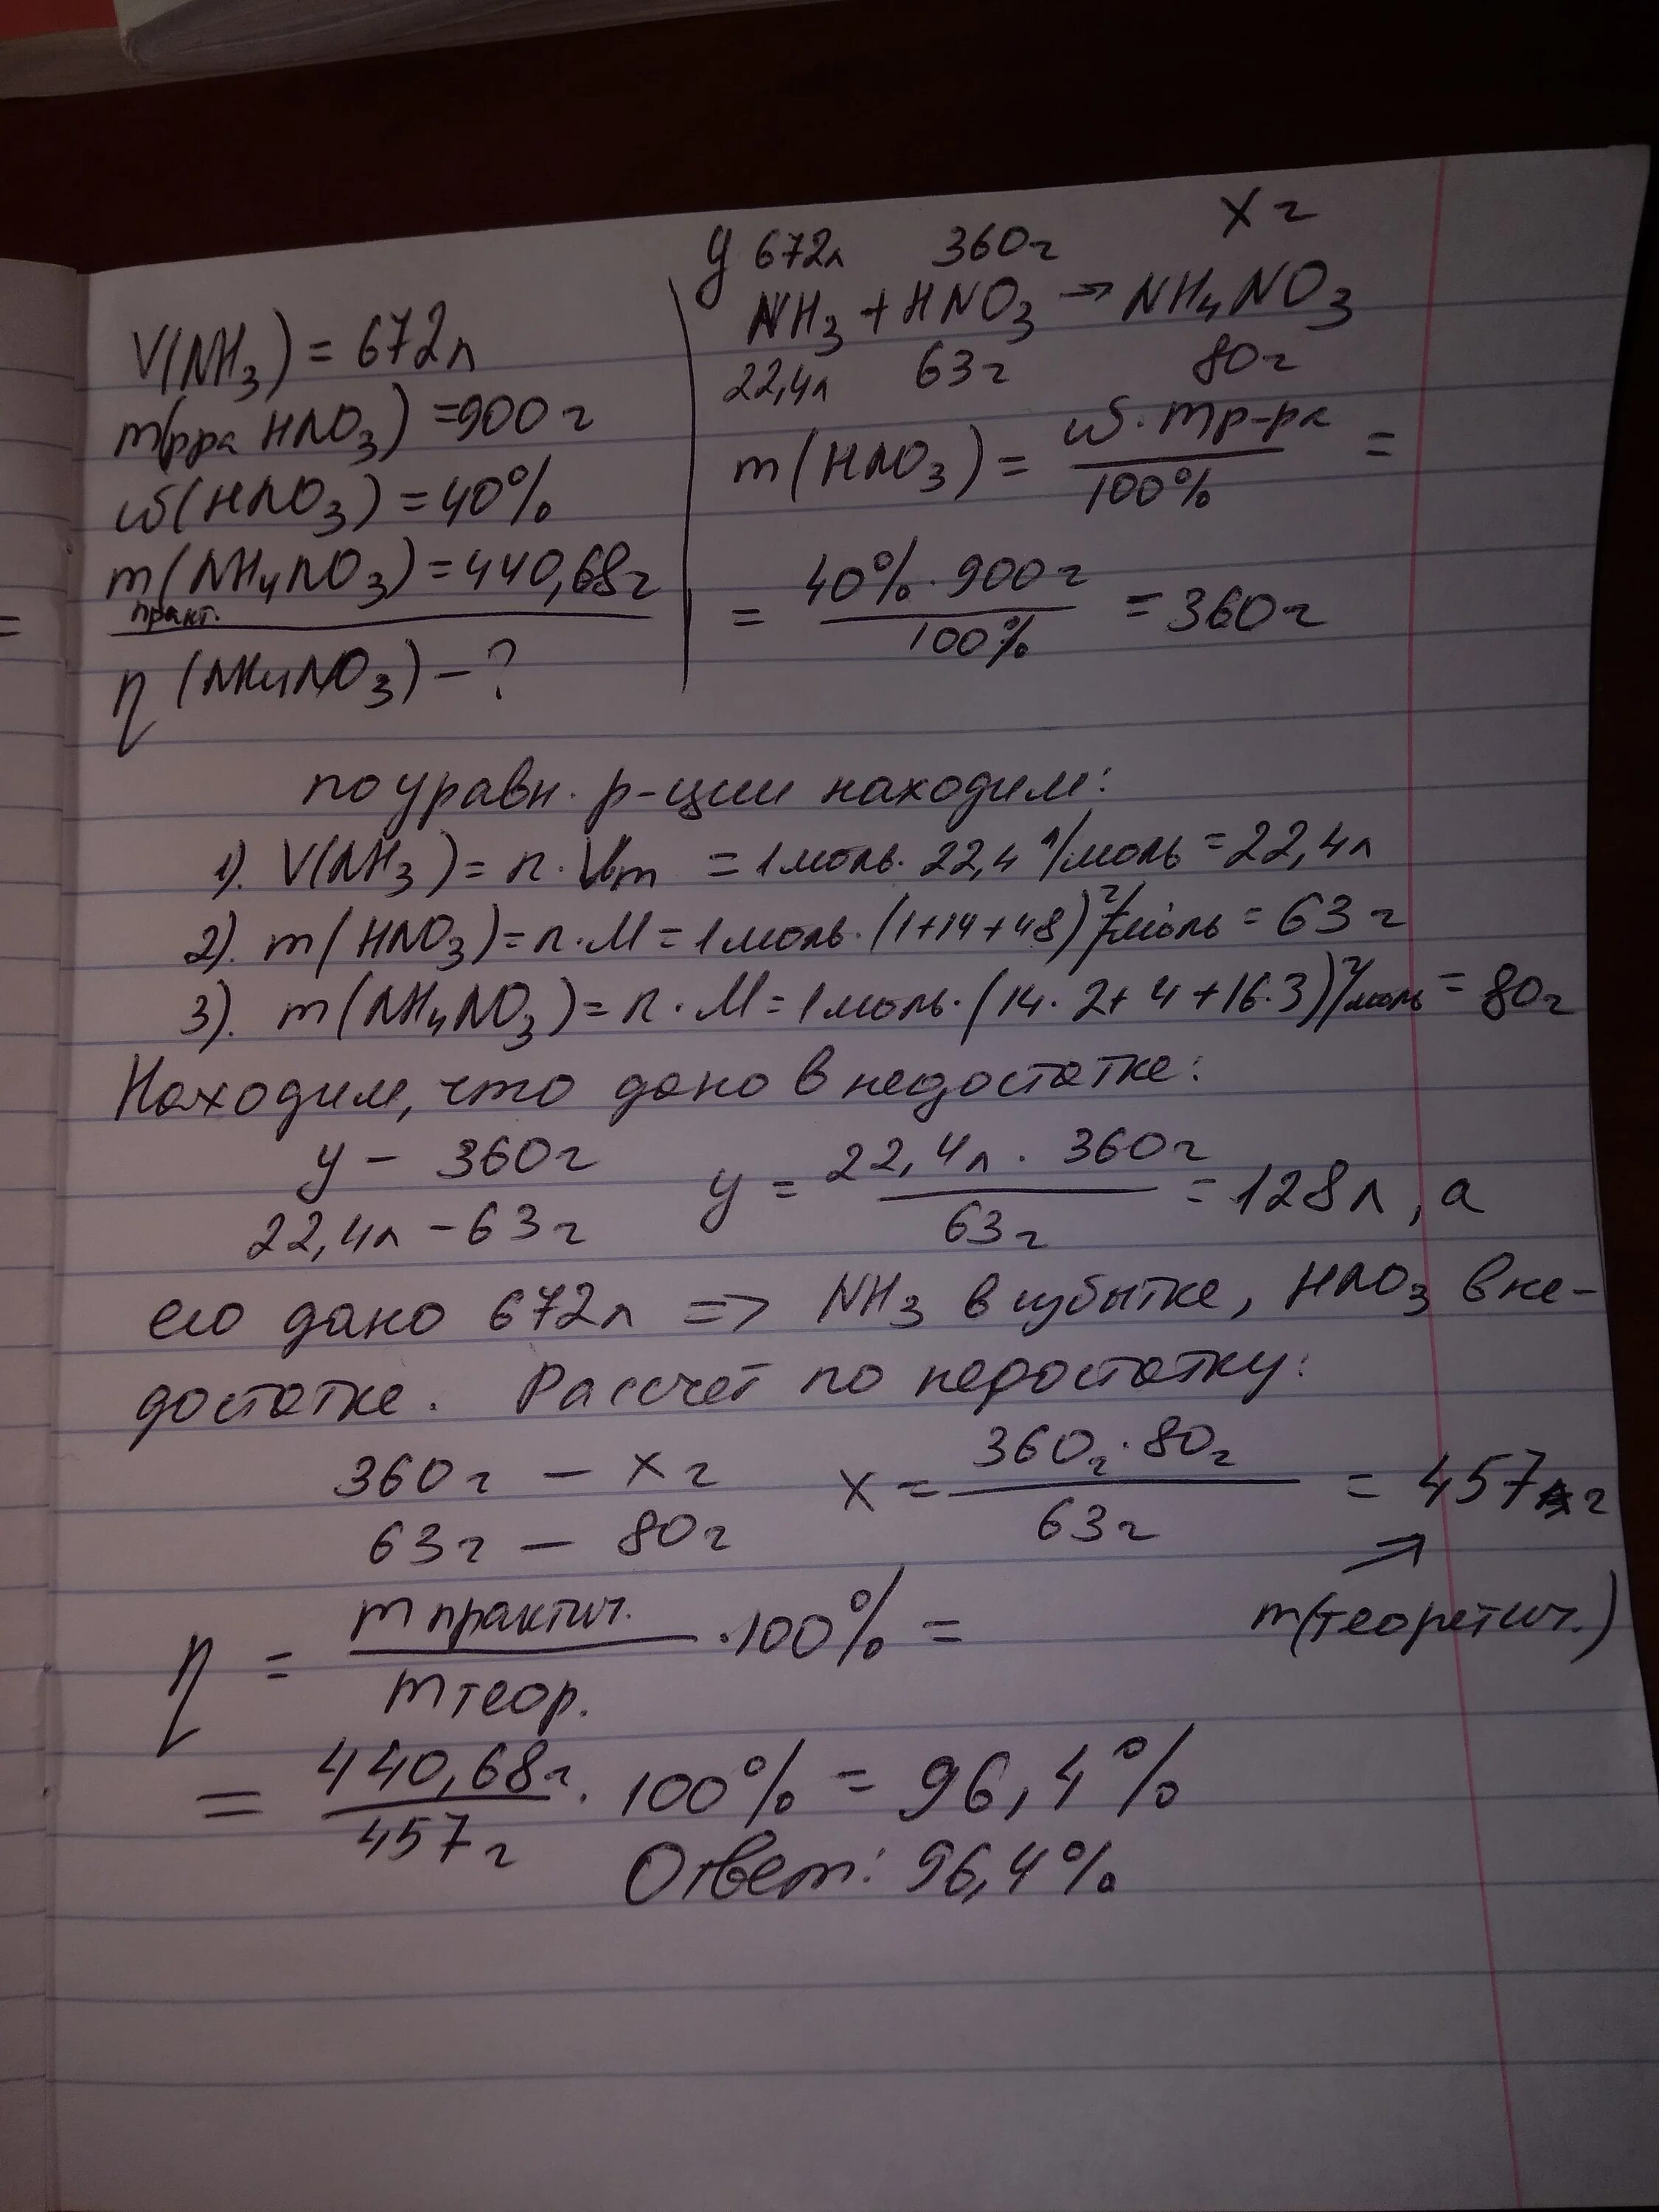 V(NH₃) = 672л
m(рра HNO₃) = 900г
ω(HNO₃) = 40%
m(NH₄NO₃) = 440,68г
практ.
η (NH₄NO₃) – ?
у 672л 360г x г
NH₃ + HNO₃ → NH₄NO₃
22,4л 63г 80г
m(HNO₃) = ω·mр-ра / 100% =
= 40%·900г / 100% = 360г
по уравн. р-ции находим:
1). V(NH₃) = n·Vm = 1моль·22,4 л/моль = 22,4л
2). m(HNO₃) = n·M = 1моль·(1+14+48) г/моль = 63г
3). m(NH₄NO₃) = n·M = 1моль·(14·2+4+16·3) г/моль = 80г
Находим, что дано в недостатке:
у – 360г
22,4л – 63г
у = 22,4л · 360г / 63г = 128л, а
его дано 672л => NH₃ в избытке, HNO₃ в не-
достатке. Рассчет по недостатку:
360г – x г
63г – 80г
x = 360г·80г / 63г = 457 г
m(теоретич.)
η = m практич. / m теор. ·100% =
= 440,68г / 457г · 100% = 96,4%
Ответ: 96,4%